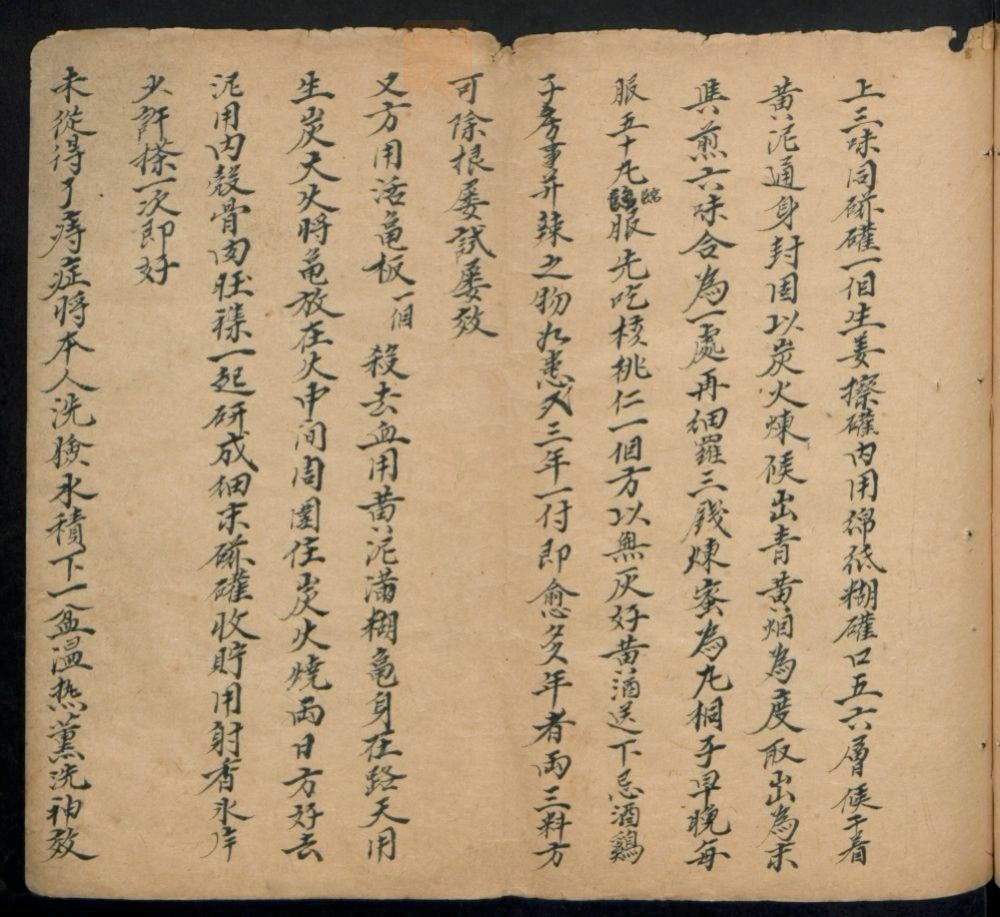 上三味同𥐻礶一個生姜擦礶內用綿紙糊礶口五六層候干着
黄泥通身封固以炭火煉候出青黄烟為度取出為末
與煎六味合為一處再細羅三錢煉蜜為丸桐子早晚每
服五十丸臨服先吃核桃仁一個方以無灰好黄酒送下忌酒鷄
子房事并辣之物如患又三年一付即愈多久年者両三料方
可除根屡試屡效
又方用活龟板一個 殺去血用黄泥滿糊龟身在路天用
生炭天火將龟放在火中间周圍住炭火燒両日方好去
泥用內殼骨肉旺襍一起研成细末𥐻礶收貯用射香氷片
少許搽一次即好
未從得了痔症將本人洗臉水積下一盆温热薰洗神效